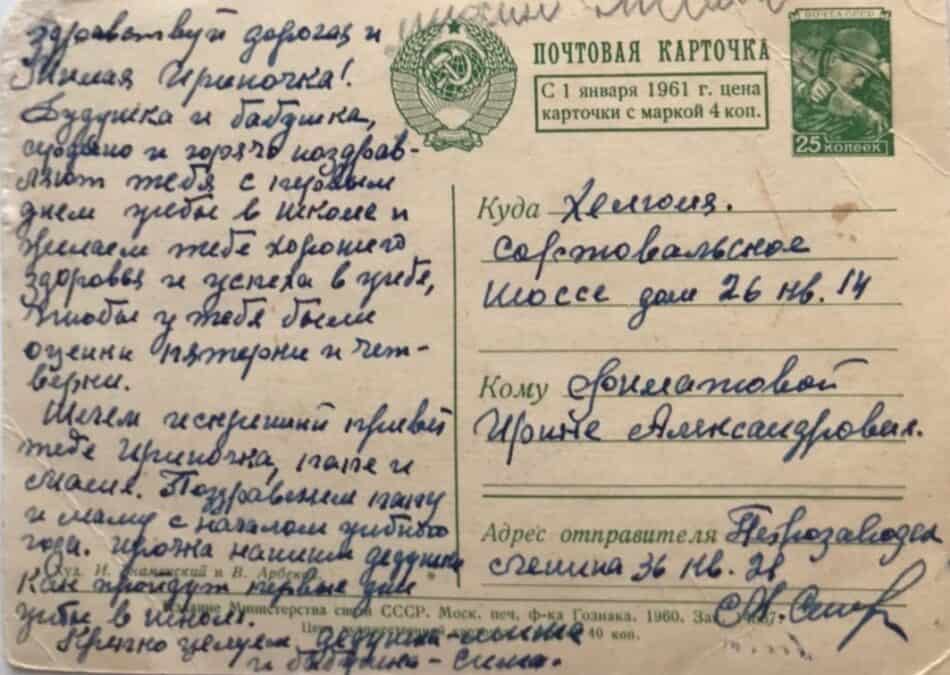 Здравствуй дорогая и
Милая Ириночка!
Дедушка и бабушка,
сердечно и горячо поздрав-
ляют тебя с первым
днем учебы в школе и
желаем тебе хорошего
здоровья и успеха в учебе,
чтобы у тебя были
оценки пятерки и чет-
верки.
Шлем искренний привет
тебе Ириночка, папе и
маме. Поздравляем папу
и маму с началом учебного
года. Ирочка напиши дедушке
Как пройдут первые дни
учебы в школе.
Крепко целуем дедушка-миша
и бабушка-сима.
Худ. И. Знаменский и В. Арбеков
Издание Министерства связи СССР. Моск. печ. ф-ка Гознака. 1960.
40 коп.
ПОЧТА СССР
25 КОПЕЕК
ПОЧТОВАЯ КАРТОЧКА
С 1 января 1961 г. цена
карточки с маркой 4 коп.
Куда Хелюля.
Сортовальское
шоссе дом 26 кв. 14
Кому Филатовой
Ирине Александровн.
Адрес отправителя Петрозаводск
Ленина 36 кв. 21